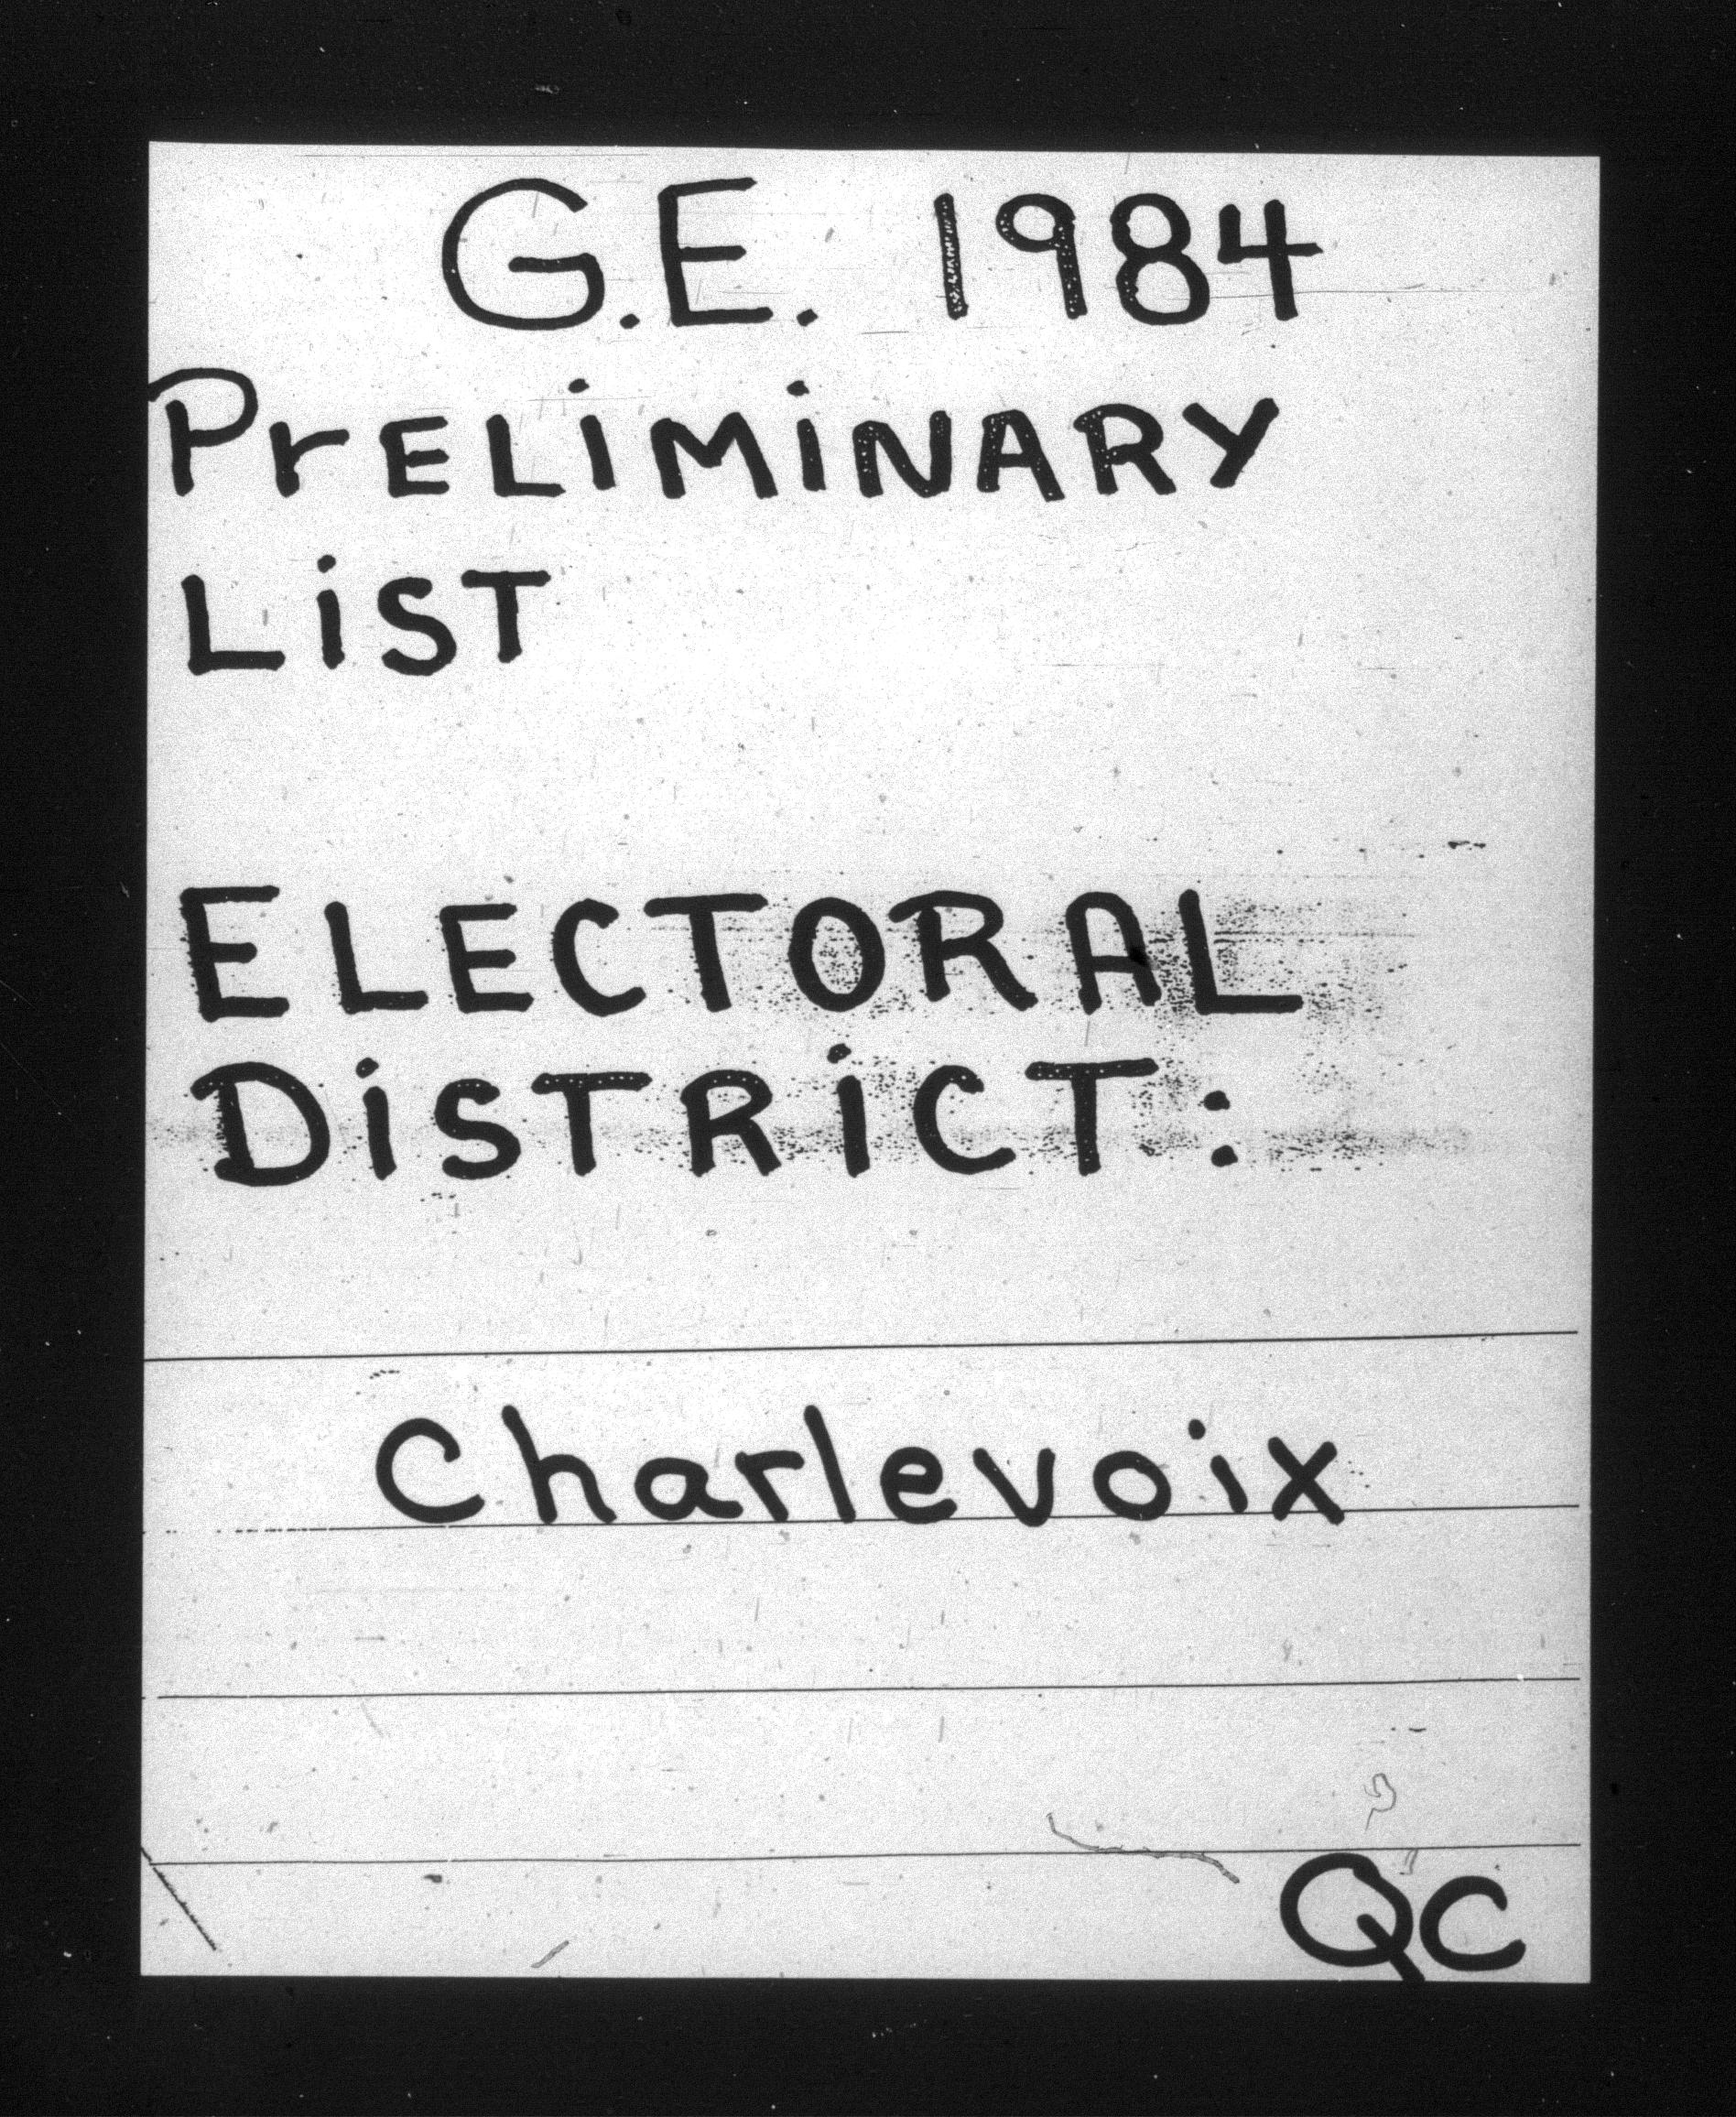 G.E. 1984
PreLiMiNARY
LiST
ELECTORAL
DiSTRiCT:
Charlevoix
QC